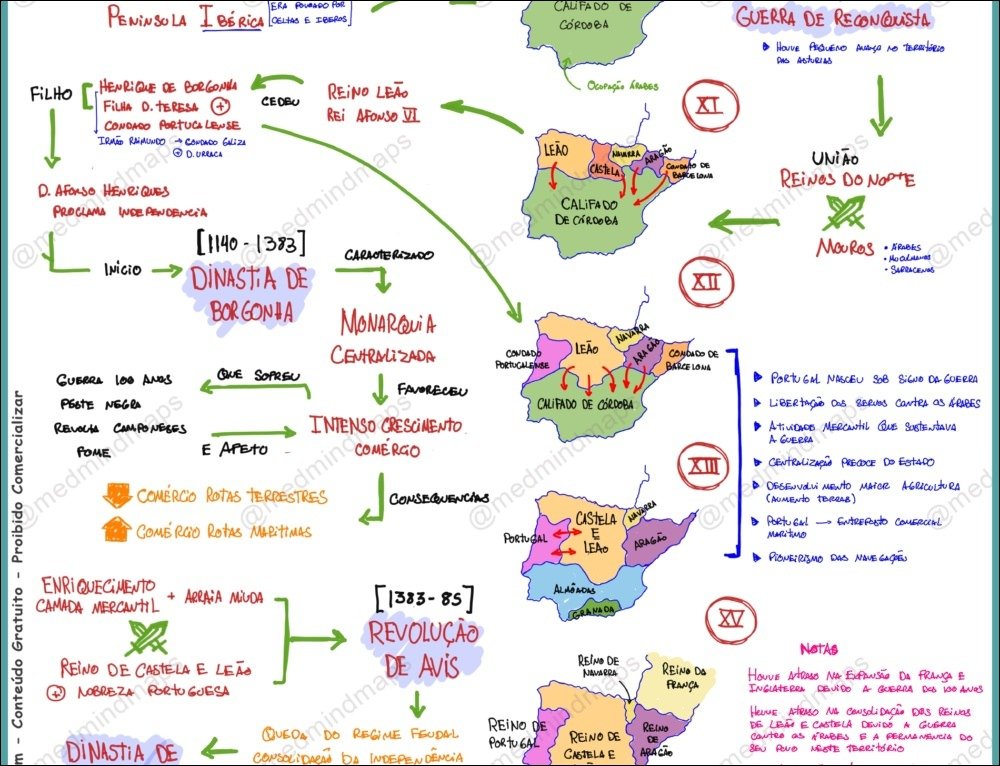 PENÍNSULA IBÉRICA
ERA POVOADO POR
CELTAS E IBEROS
CALIFADO DE
CÓRDOBA
OCUPAÇÃO ÁRABES
GUERRA DE RECONQUISTA
HOUVE PEQUENO AVANÇO NO TERRITÓRIO
DAS ASTURIAS
FILHO
HENRIQUE DE BORGONHA
FILHA D. TERESA +
CONDADO PORTUCALENSE
IRMÃO RAIMUNDO → CONDADO GALIZA
+ D. URRACA
CEDEU
REINO LEÃO
REI AFONSO VI
XI
LEÃO
CASTELA
NAVARRA
ARAGÃO
CONDADO DE
BARCELONA
CALIFADO
DE CÓRDOBA
UNIÃO
REINOS DO NORTE
MOUROS
• ÁRABES
• MUÇULMANOS
• SARRACENOS
D. AFONSO HENRIQUES
PROCLAMA INDEPENDENCIA
INÍCIO
[1140 - 1383]
DINASTIA DE
BORGONHA
CARACTERIZADO
MONARQUIA
CENTRALIZADA
FAVORECEU
INTENSO CRESCIMENTO
COMÉRCIO
QUE SOFREU
E AFETO
GUERRA 100 ANOS
PESTE NEGRA
REVOLTA CAMPONESES
FOME
COMÉRCIO ROTAS TERRESTRES
COMÉRCIO ROTAS MARITIMAS
CONSEQUENCIAS
XII
CONDADO
PORTUCALENSE
LEÃO
NAVARRA
ARAGÃO
CONDADO DE
BARCELONA
CALIFADO DE CÓRDOBA
PORTUGAL NASCEU SOB SIGNO DA GUERRA
LIBERTAÇÃO DOS SERVOS CONTRA OS ÁRABES
ATIVIDADE MERCANTIL QUE SUSTENTAVA
A GUERRA
CENTRALIZAÇÃO PRECOCE DO ESTADO
DESENVOLVIMENTO MAIOR AGRICULTURA
(AUMENTO TERRAS)
PORTUGAL → ENTREPOSTO COMERCIAL
MARÍTIMO
PIONEIRISMO DAS NAVEGAÇÕES
XIII
PORTUGAL
CASTELA
E
LEÃO
NAVARRA
ARAGÃO
ALMÔADAS
GRANADA
ENRIQUECIMENTO
CAMADA MERCANTIL + ARRAIA MIUDA
REINO DE CASTELA E LEÃO
+ NOBREZA PORTUGUESA
[1383-85]
REVOLUÇÃO
DE AVIS
QUEDA DO REGIME FEUDAL
CONSOLIDAÇÃO DA INDEPENDÊNCIA
DINASTIA DE
XV
REINO DE
NAVARRA
REINO DA
FRANÇA
REINO DE
PORTUGAL
REINO DE
CASTELA E
REINO DE
ARAGÃO
NOTAS
HOUVE ATRASO NA EXPANSÃO DA FRANÇA E
INGLATERRA DEVIDO A GUERRA DOS 100 ANOS
HOUVE ATRASO NA CONSOLIDAÇÃO DOS REINOS
DE LEÃO E CASTELA DEVIDO A GUERRA
CONTRA OS ÁRABES E A PERMANENCIA DO
SEU POVO NESTE TERRITÓRIO
m - Conteúdo Gratuito - Proibido Comercializar
@medmindmaps